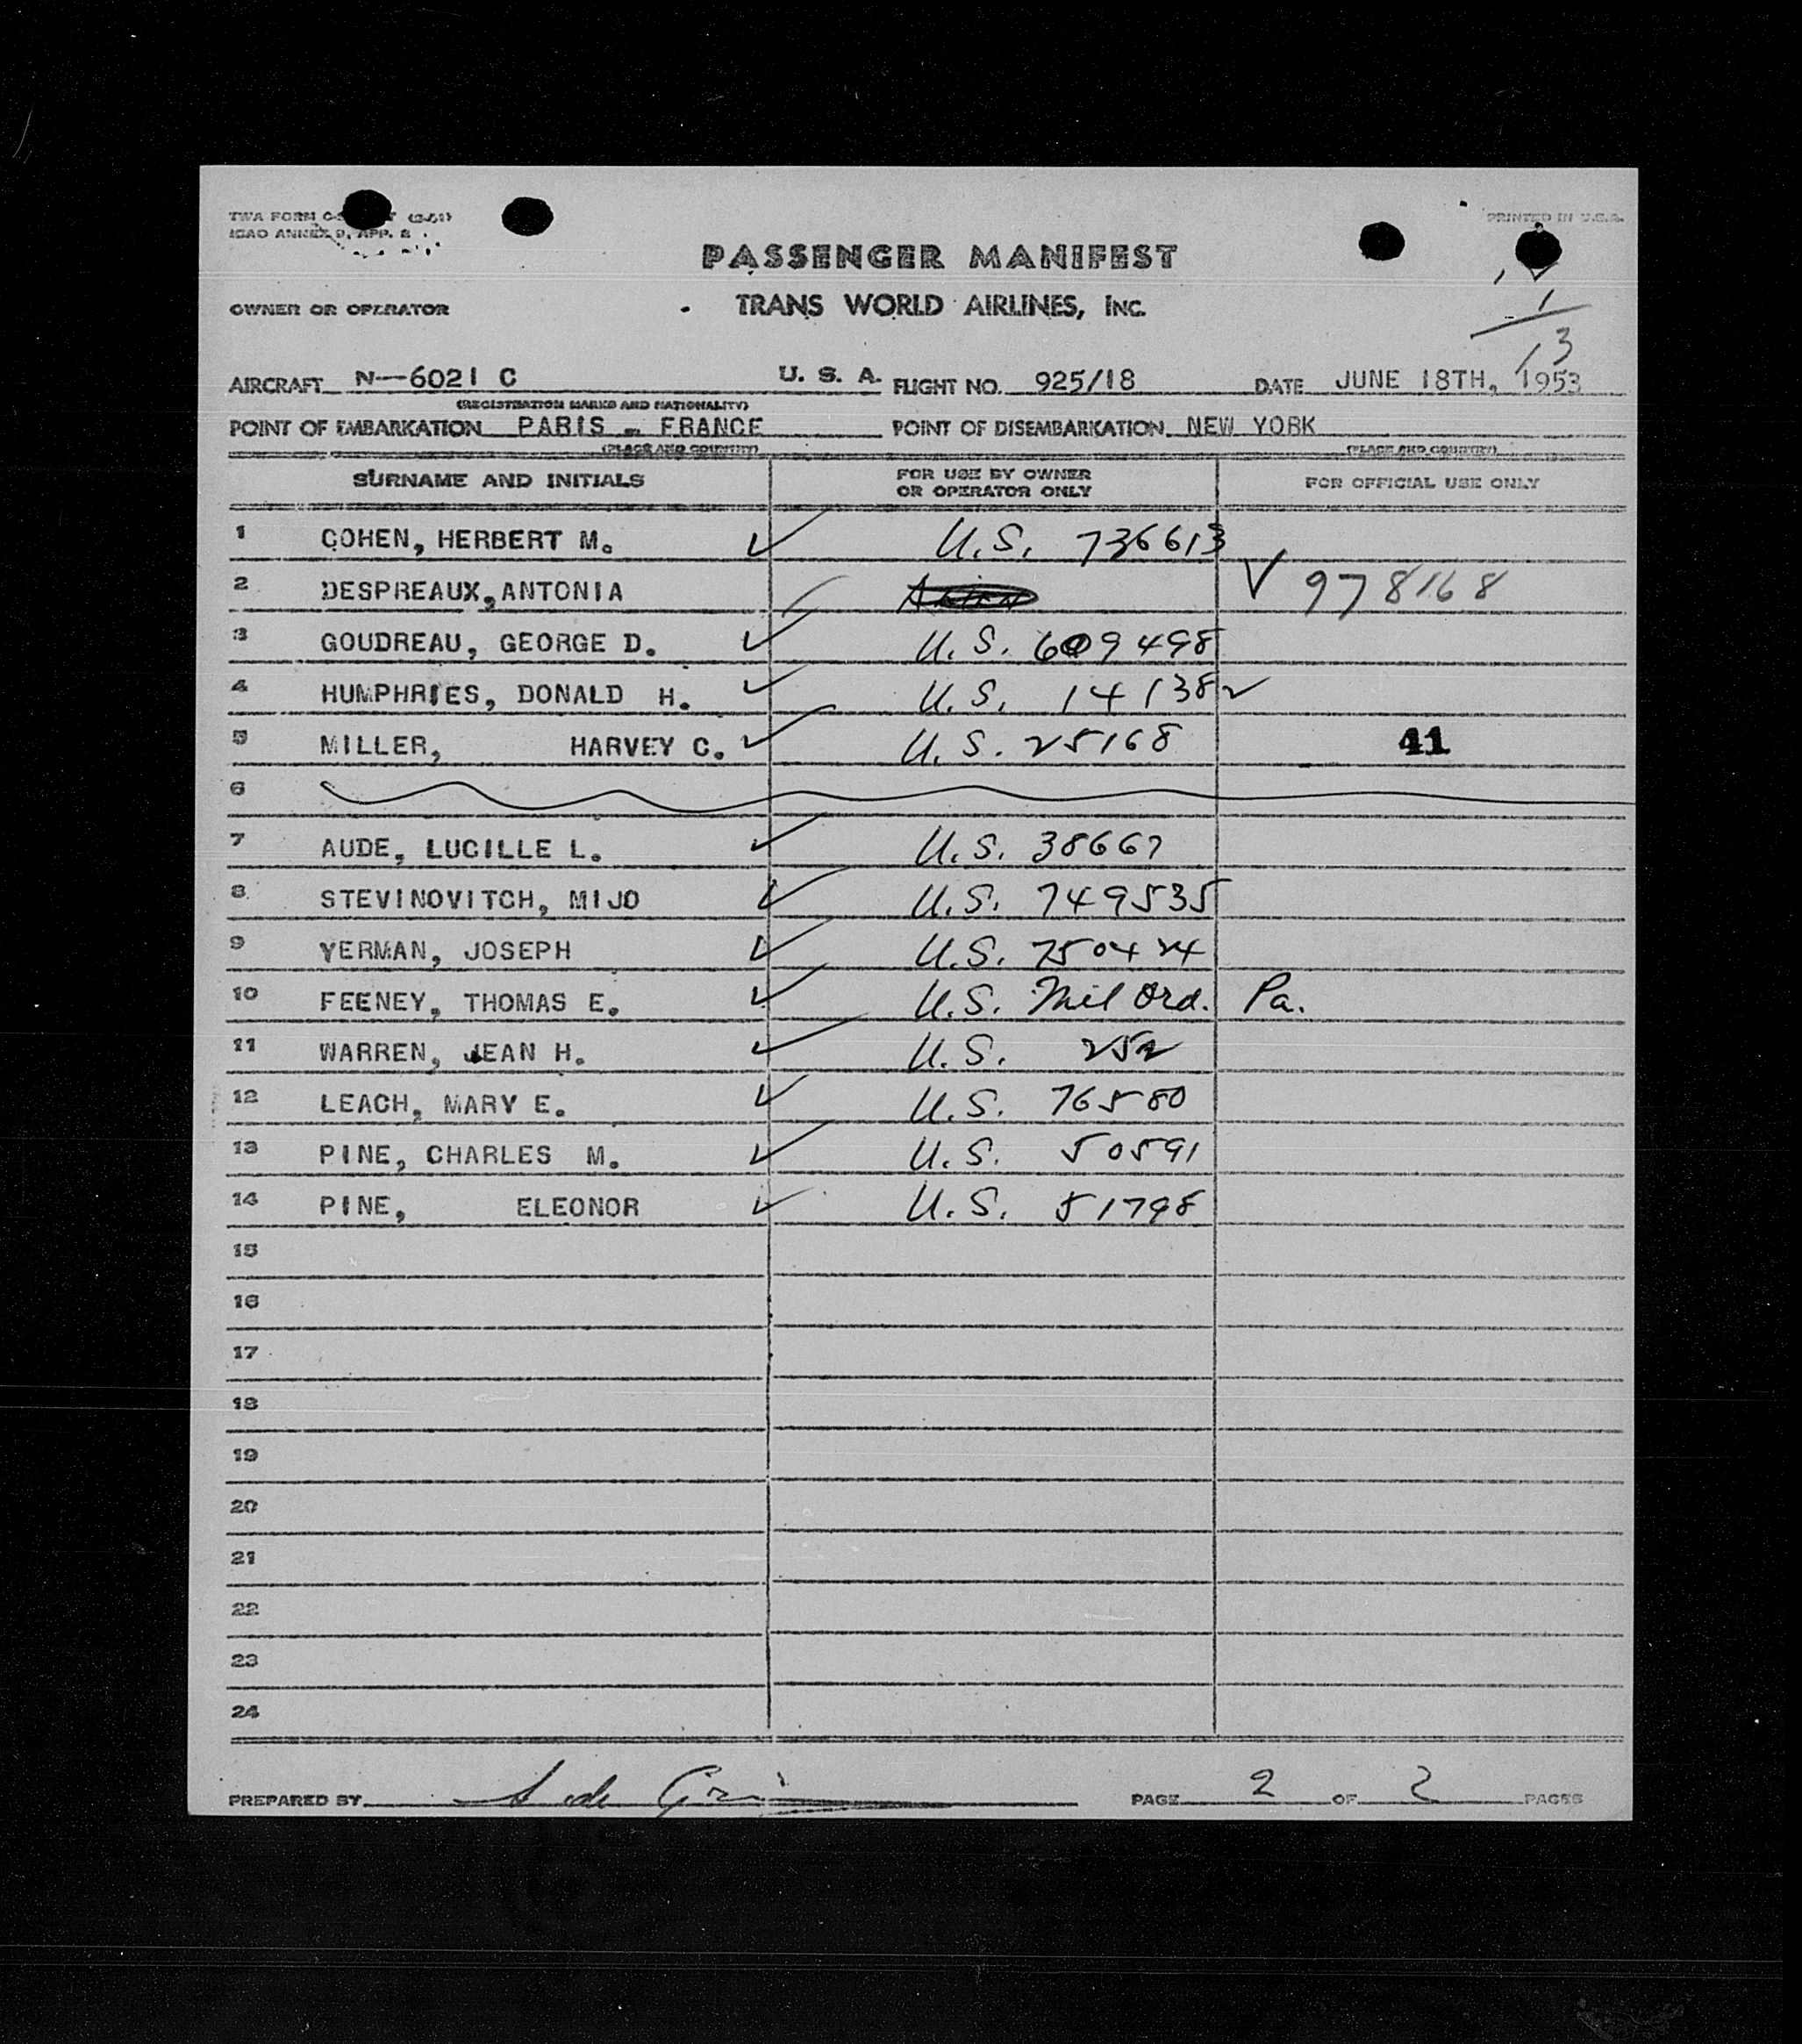 TWA FORM
(2-51)
PRINTED IN U.S.A.
ICAO ANNEX 9, APP. 2
PASSENGER MANIFEST
OWNER OR OPERATOR TRANS WORLD AIRLINES, INC.
1
13
AIRCRAFT N--6021 C U. S. A. FLIGHT NO. 925/18 DATE JUNE 18TH, 1953
(REGISTRATION MARKS AND NATIONALITY)
POINT OF EMBARKATION PARIS - FRANCE POINT OF DISEMBARKATION NEW YORK
(PLACE AND COUNTRY) (PLACE AND COUNTRY)
SURNAME AND INITIALS FOR USE BY OWNER OR OPERATOR ONLY FOR OFFICIAL USE ONLY
1 COHEN, HERBERT M. ✓ U.S. 736613
2 DESPREAUX, ANTONIA ✓ V 978168
3 GOUDREAU, GEORGE D. ✓ U.S. 609498
4 HUMPHRIES, DONALD H. ✓ U.S. 141382
5 MILLER, HARVEY C. ✓ U.S. 25168 41
6
7 AUDE, LUCILLE L. ✓ U.S. 38667
8 STEVINOVITCH, MIJO ✓ U.S. 749535
9 YERMAN, JOSEPH ✓ U.S. 750424
10 FEENEY, THOMAS E. ✓ U.S. Mil Ord. Pa.
11 WARREN, JEAN H. ✓ U.S. 252
12 LEACH, MARY E. ✓ U.S. 76580
13 PINE, CHARLES M. ✓ U.S. 50591
14 PINE, ELEONOR ✓ U.S. 51798
15
16
17
18
19
20
21
22
23
24
PREPARED BY PAGE 2 OF 2 PAGES